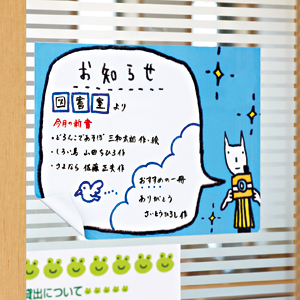 お知らせ
図書室より
今月の新書
・どろんこであそぼ 三和太郎 作・絵
・しろい鳥 山田ちひろ 作
・さよなら 佐藤正夫 作
おすすめの一冊
ありがとう
さいとうひろし 作
貸出について